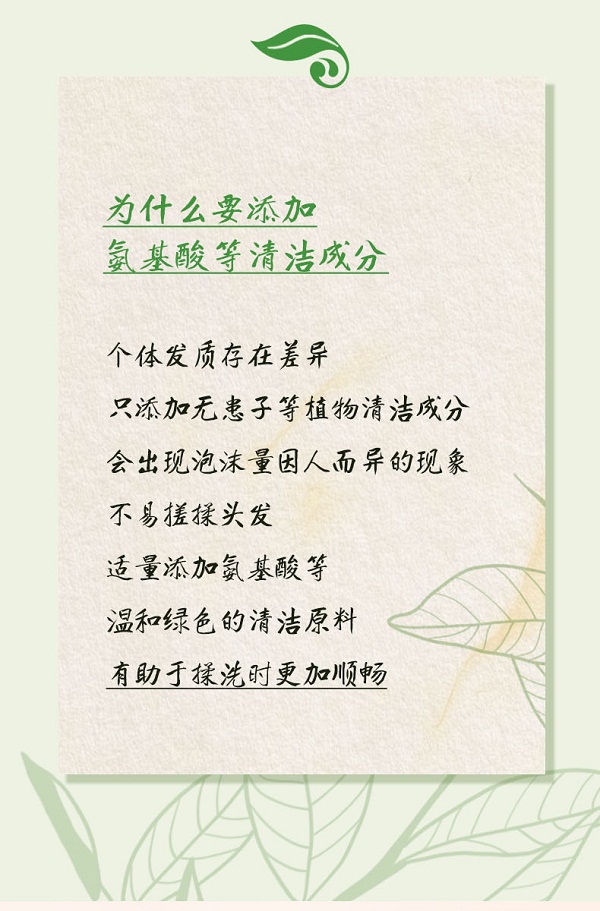 为什么要添加
氨基酸等清洁成分
个体发质存在差异
只添加无患子等植物清洁成分
会出现泡沫量因人而异的现象
不易搓揉头发
适量添加氨基酸等
温和绿色的清洁原料
有助于揉洗时更加顺畅